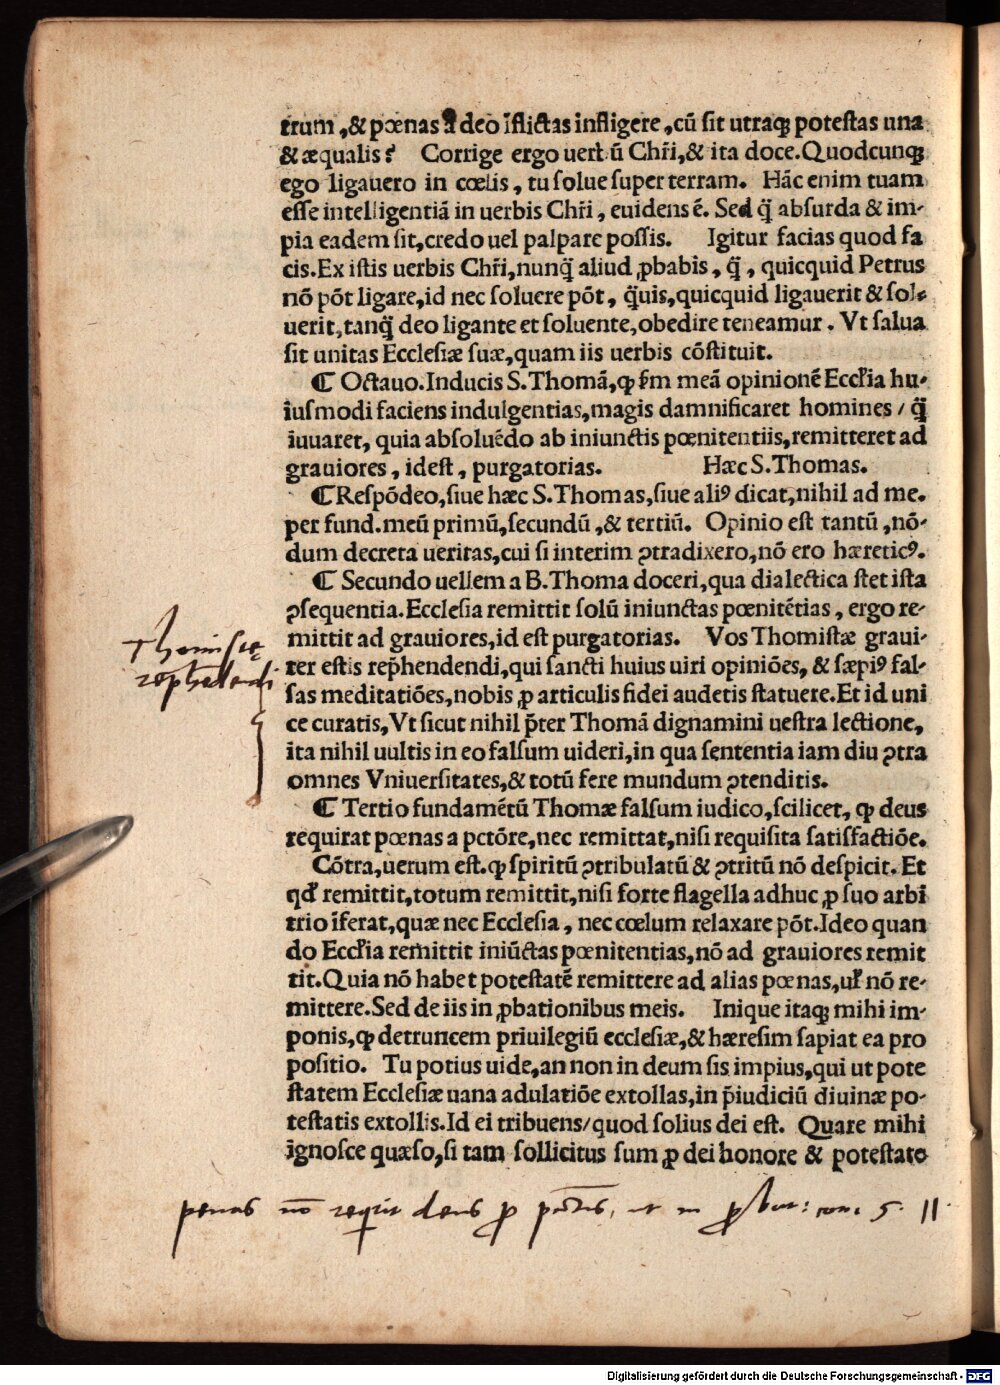 trum, & pœnas a deo īflictas infligere, cū sit utraqꝫ potestas una
& æqualis? Corrige ergo uerbū Chr̄i, & ita doce. Quodcunqꝫ
ego ligauero in cœlis, tu solue super terram. Hāc enim tuam
esse intelligentiā in uerbis Chr̄i, euidens ē. Sed q̄ absurda & im-
pia eadem sit, credo uel palpare possis. Igitur facias quod fa
cis. Ex istis uerbis Chr̄i, nunq̄ aliud ꝓbabis, q̄, quicquid Petrus
nō pōt ligare, id nec soluere pōt, q̄uis, quicquid ligauerit & sol-
uerit, tanq̄ deo ligante et soluente, obedire teneamur. Vt salua
sit unitas Ecclesiæ suæ, quam iis uerbis cōstituit.
¶ Octauo. Inducis S. Thomā, ꝙ s̄m meā opinionē Eccl̄ia hu-
iusmodi faciens indulgentias, magis damnificaret homines / q̄
iuuaret, quia absoluēdo ab iniunctis pœnitentiis, remitteret ad
grauiores, idest, purgatorias. Hæc S. Thomas.
¶ Respōdeo, siue hæc S. Thomas, siue aliꝰ dicat, nihil ad me.
per fund. meū primū, secundū, & tertiū. Opinio est tantū, nō-
dum decreta ueritas, cui si interim ꝯtradixero, nō ero hæreticꝰ.
¶ Secundo uellem a B. Thoma doceri, qua dialectica stet ista
ꝯsequentia. Ecclesia remittit solū iniunctas pœnitētias, ergo re-
mittit ad grauiores, id est purgatorias. Vos Thomistæ graui-
ter estis rep̄hendendi, qui sancti huius uiri opiniōes, & sæpiꝰ fal-
sas meditatiōes, nobis ꝓ articulis fidei audetis statuere. Et id uni
ce curatis, Vt sicut nihil p̄ter Thomā dignamini uestra lectione,
ita nihil uultis in eo falsum uideri, in qua sententia iam diu ꝯtra
omnes Vniuersitates, & totū fere mundum ꝯtenditis.
Thomistę
rep̄hēdendi
¶ Tertio fundamētū Thomæ falsum iudico, scilicet, ꝙ deus
requirat pœnas a pctōre, nec remittat, nisi requisita satisfactiōe.
Cōtra, uerum est. ꝙ spiritū ꝯtribulatū & ꝯtritū nō despicit. Et
qd̄ remittit, totum remittit, nisi forte flagella adhuc ꝓ suo arbi
trio īferat, quæ nec Ecclesia, nec cœlum relaxare pōt. Ideo quan
do Eccl̄ia remittit iniūctas pœnitentias, nō ad grauiores remit
tit. Quia nō habet potestatē remittere ad alias pœnas, ul̄ nō re-
mittere. Sed de iis in ꝓbationibus meis. Inique itaqꝫ mihi im-
ponis, ꝙ detruncem priuilegiū ecclesiæ, & hæresim sapiat ea pro
positio. Tu potius uide, an non in deum sis impius, qui ut pote
statem Ecclesiæ uana adulatiōe extollas, in p̄iudiciū diuinæ po-
testatis extollis. Id ei tribuens / quod solius dei est. Quare mihi
ignosce quæso, si tam sollicitus sum ꝓ dei honore & potestate
penas nō reqrit deus ꝓ ut in con: 5. 11.
Digitalisierung gefördert durch die Deutsche Forschungsgemeinschaft - DFG